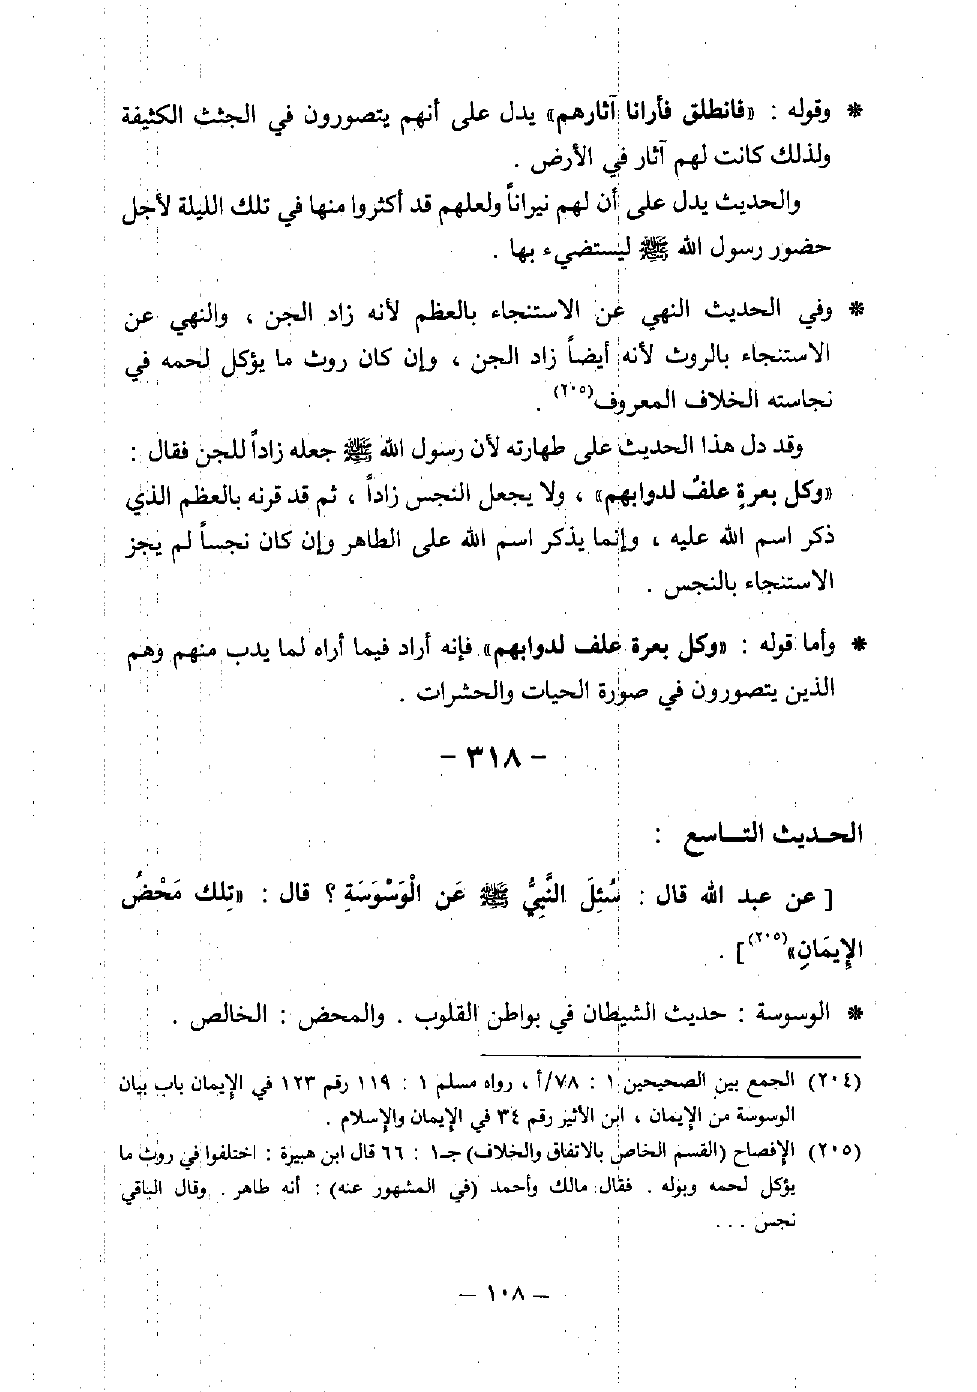 * وقوله : «فانطلق فأرانا آثارهم» يدل على أنهم يتصورون في الجثث الكثيفة
ولذلك كانت لهم آثار في الأرض .
والحديث يدل على أن لهم نيراناً ولعلهم قد أكثروا منها في تلك الليلة لأجل
حضور رسول الله ﷺ ليستضيء بها .
* وفي الحديث النهي عن الاستنجاء بالعظم لأنه زاد الجن ، والنهي عن
الاستنجاء بالروث لأنه أيضاً زاد الجن ، وإن كان روث ما يؤكل لحمه في
نجاسته الخلاف المعروف(٢٠٥) .
وقد دل هذا الحديث على طهارته لأن رسول الله ﷺ جعله زاداً للجن فقال :
«وكل بعرةٍ علفٌ لدوابهم» ، ولا يجعل النجس زاداً ، ثم قد قرنه بالعظم الذي
ذكر اسم الله عليه ، وإنما يذكر اسم الله على الطاهر وإن كان نجساً لم يجز
الاستنجاء بالنجس .
* وأما قوله : «وكل بعرة علف لدوابهم» فإنه أراد فيما أراه لما يدب منهم وهم
الذين يتصورون في صورة الحيات والحشرات .
- ٣١٨ -
الحـديث التـــاسع :
[ عن عبد الله قال : سُئِلَ النَّبِيُّ ﷺ عَن الْوَسْوَسَةِ ؟ قال : «تِلك مَحْضُ
الإِيمَانِ»(٢٠٥)] .
* الوسوسة : حديث الشيطان في بواطن القلوب . والمحض : الخالص .
(٢٠٤) الجمع بين الصحيحين ١ : ٧٨/أ ، رواه مسلم ١ : ١١٩ رقم ١٢٣ في الإيمان باب بيان
الوسوسة من الإيمان ، ابن الأثير رقم ٣٤ في الإيمان والإسلام .
(٢٠٥) الإفصاح (القسم الخاص بالاتفاق والخلاف) جـ١ : ٦٦ قال ابن هبيرة : اختلفوا في روث ما
يؤكل لحمه وبوله . فقال مالك وأحمد (في المشهور عنه) : أنه طاهر . وقال الباقي
نجس ...
- ١٠٨ -